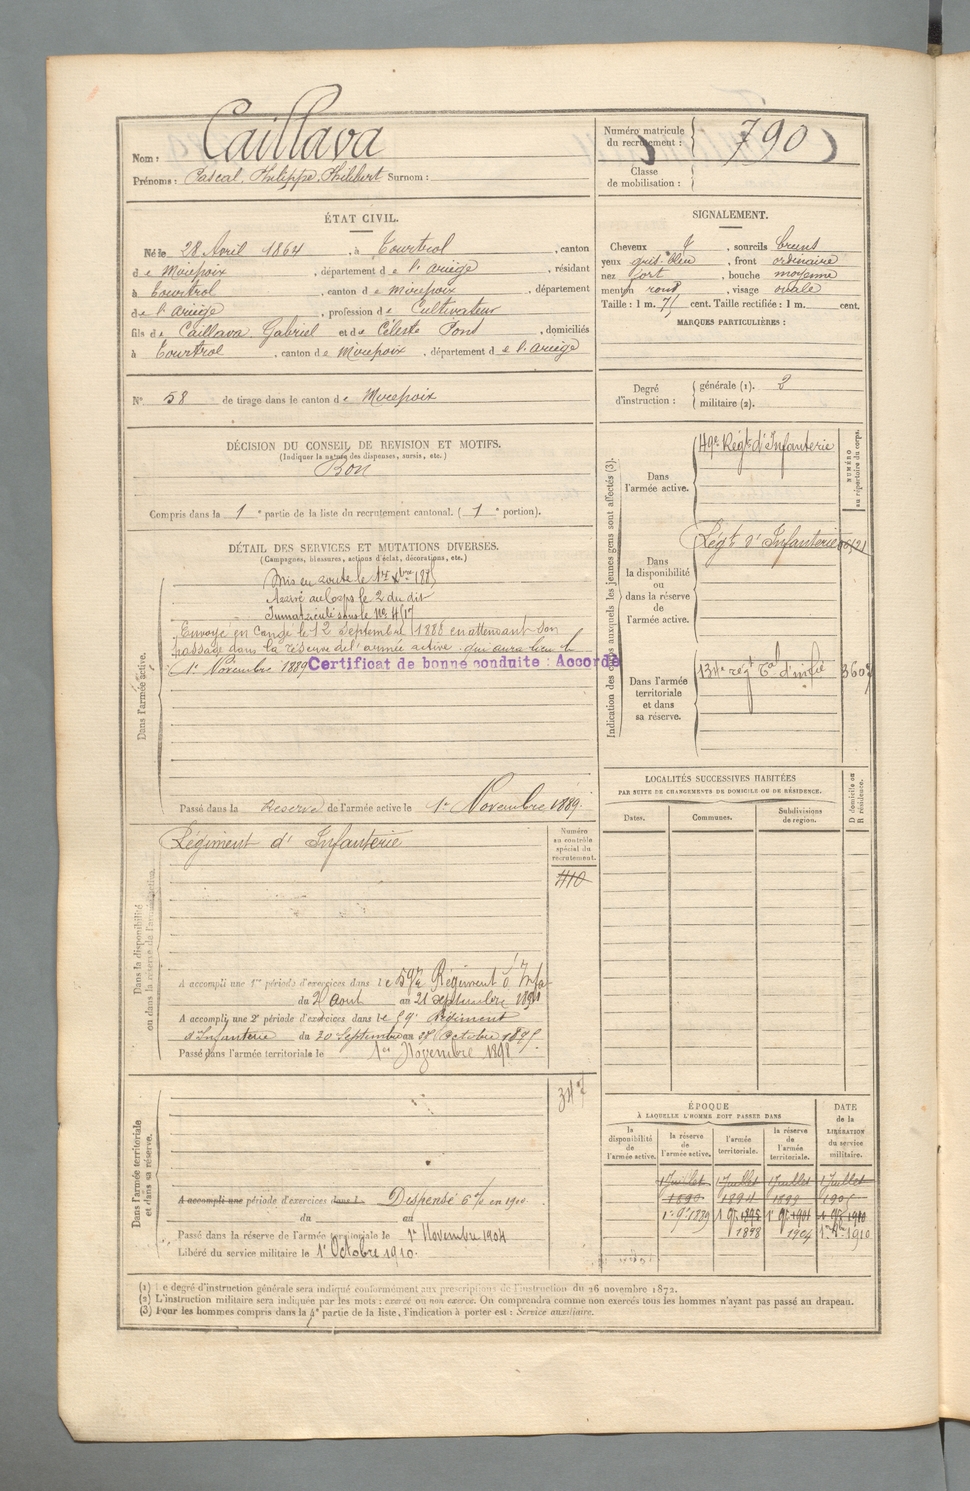 Nom : Caillava
Prénoms : Pascal, Philippe, Philibert Surnom :
Numéro matricule du recrutement : 790
Classe de mobilisation :
ÉTAT CIVIL.
Né le 28 Avril 1864, à Tourtrol, canton
de Mirepoix, département de l'ariège, résidant
à Tourtrol, canton de Mirepoix, département
de l'ariège, profession de Cultivateur
fils de Caillava Gabriel et de Céleste Pons, domiciliés
à Tourtrol, canton de Mirepoix, département de l'ariège
N° 58 de tirage dans le canton de Mirepoix
SIGNALEMENT.
Cheveux , sourcils bruns
yeux gris bleu, front ordinaire
nez fort, bouche moyenne
menton rond, visage ovale
Taille : 1 m. 71 cent. Taille rectifiée : 1 m. cent.
MARQUES PARTICULIÈRES :
Degré d'instruction : générale (1). 2
militaire (2).
DÉCISION DU CONSEIL DE REVISION ET MOTIFS.
(Indiquer la nature des dispenses, sursis, etc.)
Bon
Compris dans la 1e partie de la liste du recrutement cantonal. (1e portion).
DÉTAIL DES SERVICES ET MUTATIONS DIVERSES.
(Campagnes, blessures, actions d'éclat, décorations, etc.)
Dans l'armée active.
Mis en route le 1er Xbre 1885
Arrivé au Corps le 2 du dit
Immatriculé sous le No 4517
Envoyé en congé le 12 Septembre 1888 en attendant son
passage dans la réserve de l'armée active qui aura lieu le
1er Novembre 1889 Certificat de bonne conduite : Accordé
Passé dans la Reserve de l'armée active le 1er Novembre 1889.
Indication des corps auxquels les jeunes gens sont affectés (3).
NUMÉRO au répertoire du corps.
Dans l'armée active.
49e Régt d'Infanterie
Dans la disponibilité ou dans la réserve de l'armée active.
Régt d'Infanterie
Dans l'armée territoriale et dans sa réserve.
134e régt Tal d'infie 3607
LOCALITÉS SUCCESSIVES HABITÉES
PAR SUITE DE CHANGEMENTS DE DOMICILE OU DE RÉSIDENCE.
Dates. Communes. Subdivisions de région. D domicile ou R résidence.
Dans la disponibilité ou dans la réserve de l'armée active.
Régiment d'Infanterie
Numéro au contrôle spécial du recrutement.
410
A accompli une 1re période d'exercices dans le 59e Régiment d'Infie
du 2 aout au 21 septembre 1891
A accompli une 2e période d'exercices dans le 59e Régiment
d'Infanterie du 30 Septembre au 27 Octobre 1895
Passé dans l'armée territoriale le 1er Novembre 1898
Dans l'armée territoriale et dans sa réserve.
A accompli une période d'exercices dans l Dispensé 6% en 1900.
du au
Passé dans la réserve de l'armée territoriale le 1er Novembre 1904
Libéré du service militaire le 1er Octobre 1910.
ÉPOQUE
À LAQUELLE L'HOMME DOIT PASSER DANS
la disponibilité de l'armée active. la réserve de l'armée active. l'armée territoriale. la réserve de l'armée territoriale. DATE de la LIBÉRATION du service militaire.
1 Juillet 1 Juillet 1 Juillet 1 Juillet
1890 1894 1899 1905
1er 9e 1889 1er 9e 1895 1er 9e 1901 1er 9e 1910
1898 1904 1910
(1) Le degré d'instruction générale sera indiqué conformément aux prescriptions de l'instruction du 26 novembre 1872.
(2) L'instruction militaire sera indiquée par les mots : exercé ou non exercé. On comprendra comme non exercés tous les hommes n'ayant pas passé au drapeau.
(3) Pour les hommes compris dans la 4e partie de la liste, l'indication à porter est : Service auxiliaire.